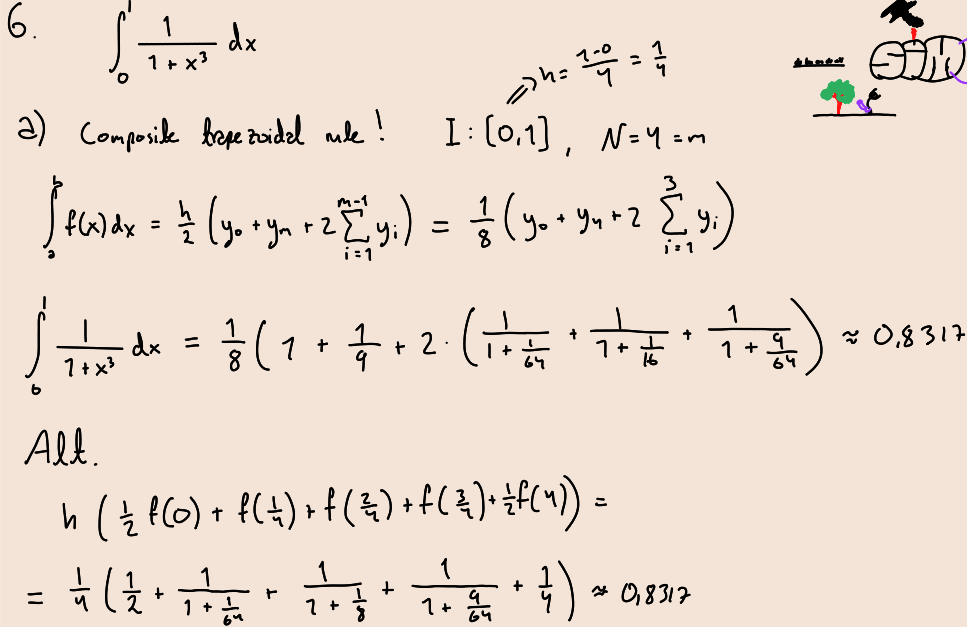 6. ∫₀¹ 1/(1+x³) dx
⇒ h = (1-0)/4 = 1/4
a) Composite trapezoidal rule! I: [0,1], N=4=m
∫ₐᵇ f(x)dx = h/2 (y₀ + yₘ + 2 ∑_{i=1}^{m-1} yᵢ) = 1/8 (y₀ + y₄ + 2 ∑_{i=1}^{3} yᵢ)
∫₀¹ 1/(1+x³) dx = 1/8 (1 + 1/9 + 2·(1/(1+1/64) + 1/(1+1/16) + 1/(1+9/64))) ≈ 0,8317
Alt.
h (1/2 f(0) + f(1/4) + f(2/4) + f(3/4) + 1/2 f(4)) =
= 1/4 (1/2 + 1/(1+1/64) + 1/(1+1/8) + 1/(1+9/64) + 1/4) ≈ 0,8317